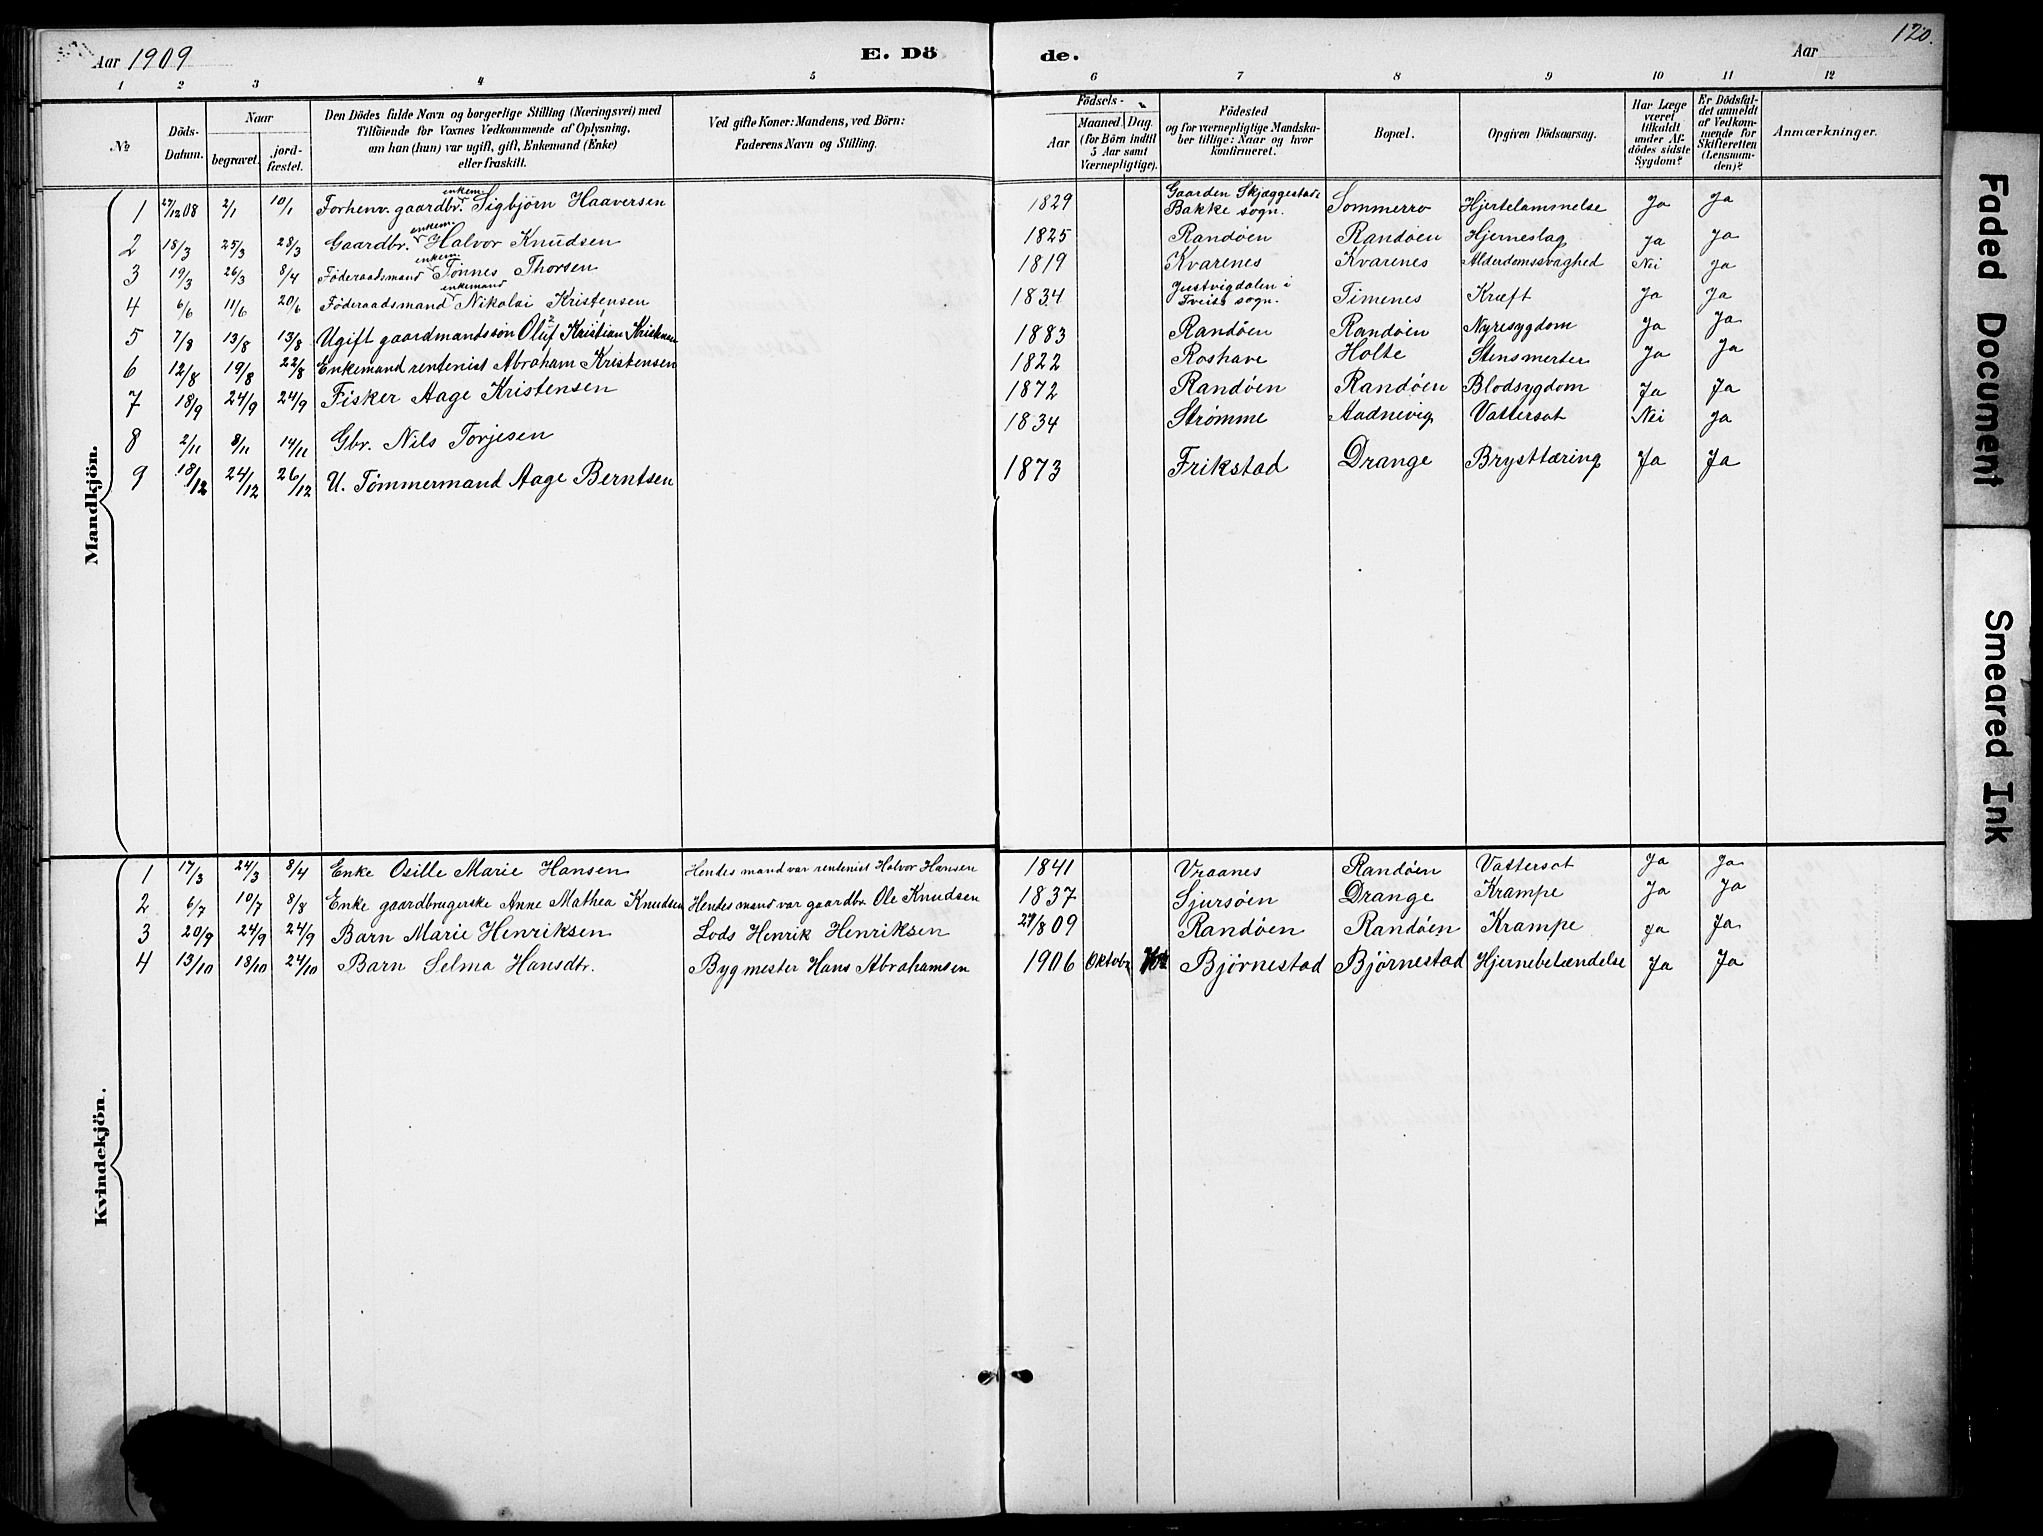 Aar 1909 E. Dö de. Aar 120.
1 2 3 4 5 6 7 8 9 10 11 12
№
Döds-Datum.
Naar
begravet.
jordfæstet.
Den Dödes fulde Navn og borgerlige Stilling (Næringsvei) med
Tilföiende for Voxnes Vedkommende af Oplysning,
om han (hun) var ugift, gift, Enkemand (Enke)
eller fraskilt.
Ved gifte Koner: Mandens, ved Börn:
Faderens Navn og Stilling.
Födsels-
Aar
Maaned Dag.
(for Börn indtil
5 Aar samt
Værnepligtige).
Födested
og for værnepligtige Mandska-
ber tillige: Naar og hvor
konfirmeret.
Bopæl.
Opgiven Dödsaarsag.
Har Læge
været
tilkaldt
under Af-
dödes sidste
Sygdom?
Er Dödsfal-
det anmeldt
af Vedkom-
mende for
Skifteretten
(Lensman-
den)?
Anmærkninger.
Mandkjön.
1 27/12 08 2/1 10/1 Forhenv. gaardbr. enkem. Sigbjörn Haaversen 1829 Gaarden Skjæggestad i Bakke sogn. Sommerro Hjertelammelse Ja Ja
2 18/3 25/3 28/3 Gaardbr. enkem. Halvor Knudsen 1825 Randöen Randöen Hjerneslag Ja Ja
3 19/3 26/3 8/4 Föderaadsmand enkem. Tönnes Thorsen 1819 Kvarenes Kvarenes Alderdomssvaghed Nei Ja
4 6/6 11/6 20/6 Föderaadsmand enkemand Nikolai Kristensen 1834 Justvigdalen i Tveits sogn. Timenes Kræft Ja Ja
5 7/8 13/8 13/8 Ugift gaardmandssön Oluf Kristian Kristensen 1883 Randöen Randöen Nyresygdom Ja Ja
6 12/8 19/8 22/8 Enkemand rentenist Abraham Kristensen 1822 Roshave Holte Stensmerter Ja Ja
7 18/9 24/9 24/9 Fisker Aage Kristensen 1872 Randöen Randöen Blodsygdom Ja Ja
8 2/11 8/11 14/11 Gbr. Nils Torjesen 1834 Strømme Aadnevig Vattersot Nei Ja
9 18/12 24/12 26/12 U. Tömmermand Aage Berntsen 1873 Frikstad Drange Brysttæring Ja Ja
Kvindekjön.
1 17/3 24/3 8/4 Enke Osille Marie Hansen Hendes mand var rentenist Halvor Hansen 1841 Vraanes Randöen Vattersot Ja Ja
2 6/7 10/7 8/8 Enke gaardbrugerske Anne Mathea Knudsen Hendes mand var gaardbr. Ole Knudsen 1837 Sjursöen Drange Krampe Ja Ja
3 20/9 24/9 24/9 Barn Marie Henriksen Lods Henrik Henriksen /8 09 Randöen Randöen Krampe Ja Ja
4 13/10 18/10 24/10 Barn Selma Hansdtr. Bygmester Hans Abrahamsen 1906 Oktobr Bjørnestad Bjørnestad Hjernebetændelse Ja Ja
Faded Document
Smeared Ink